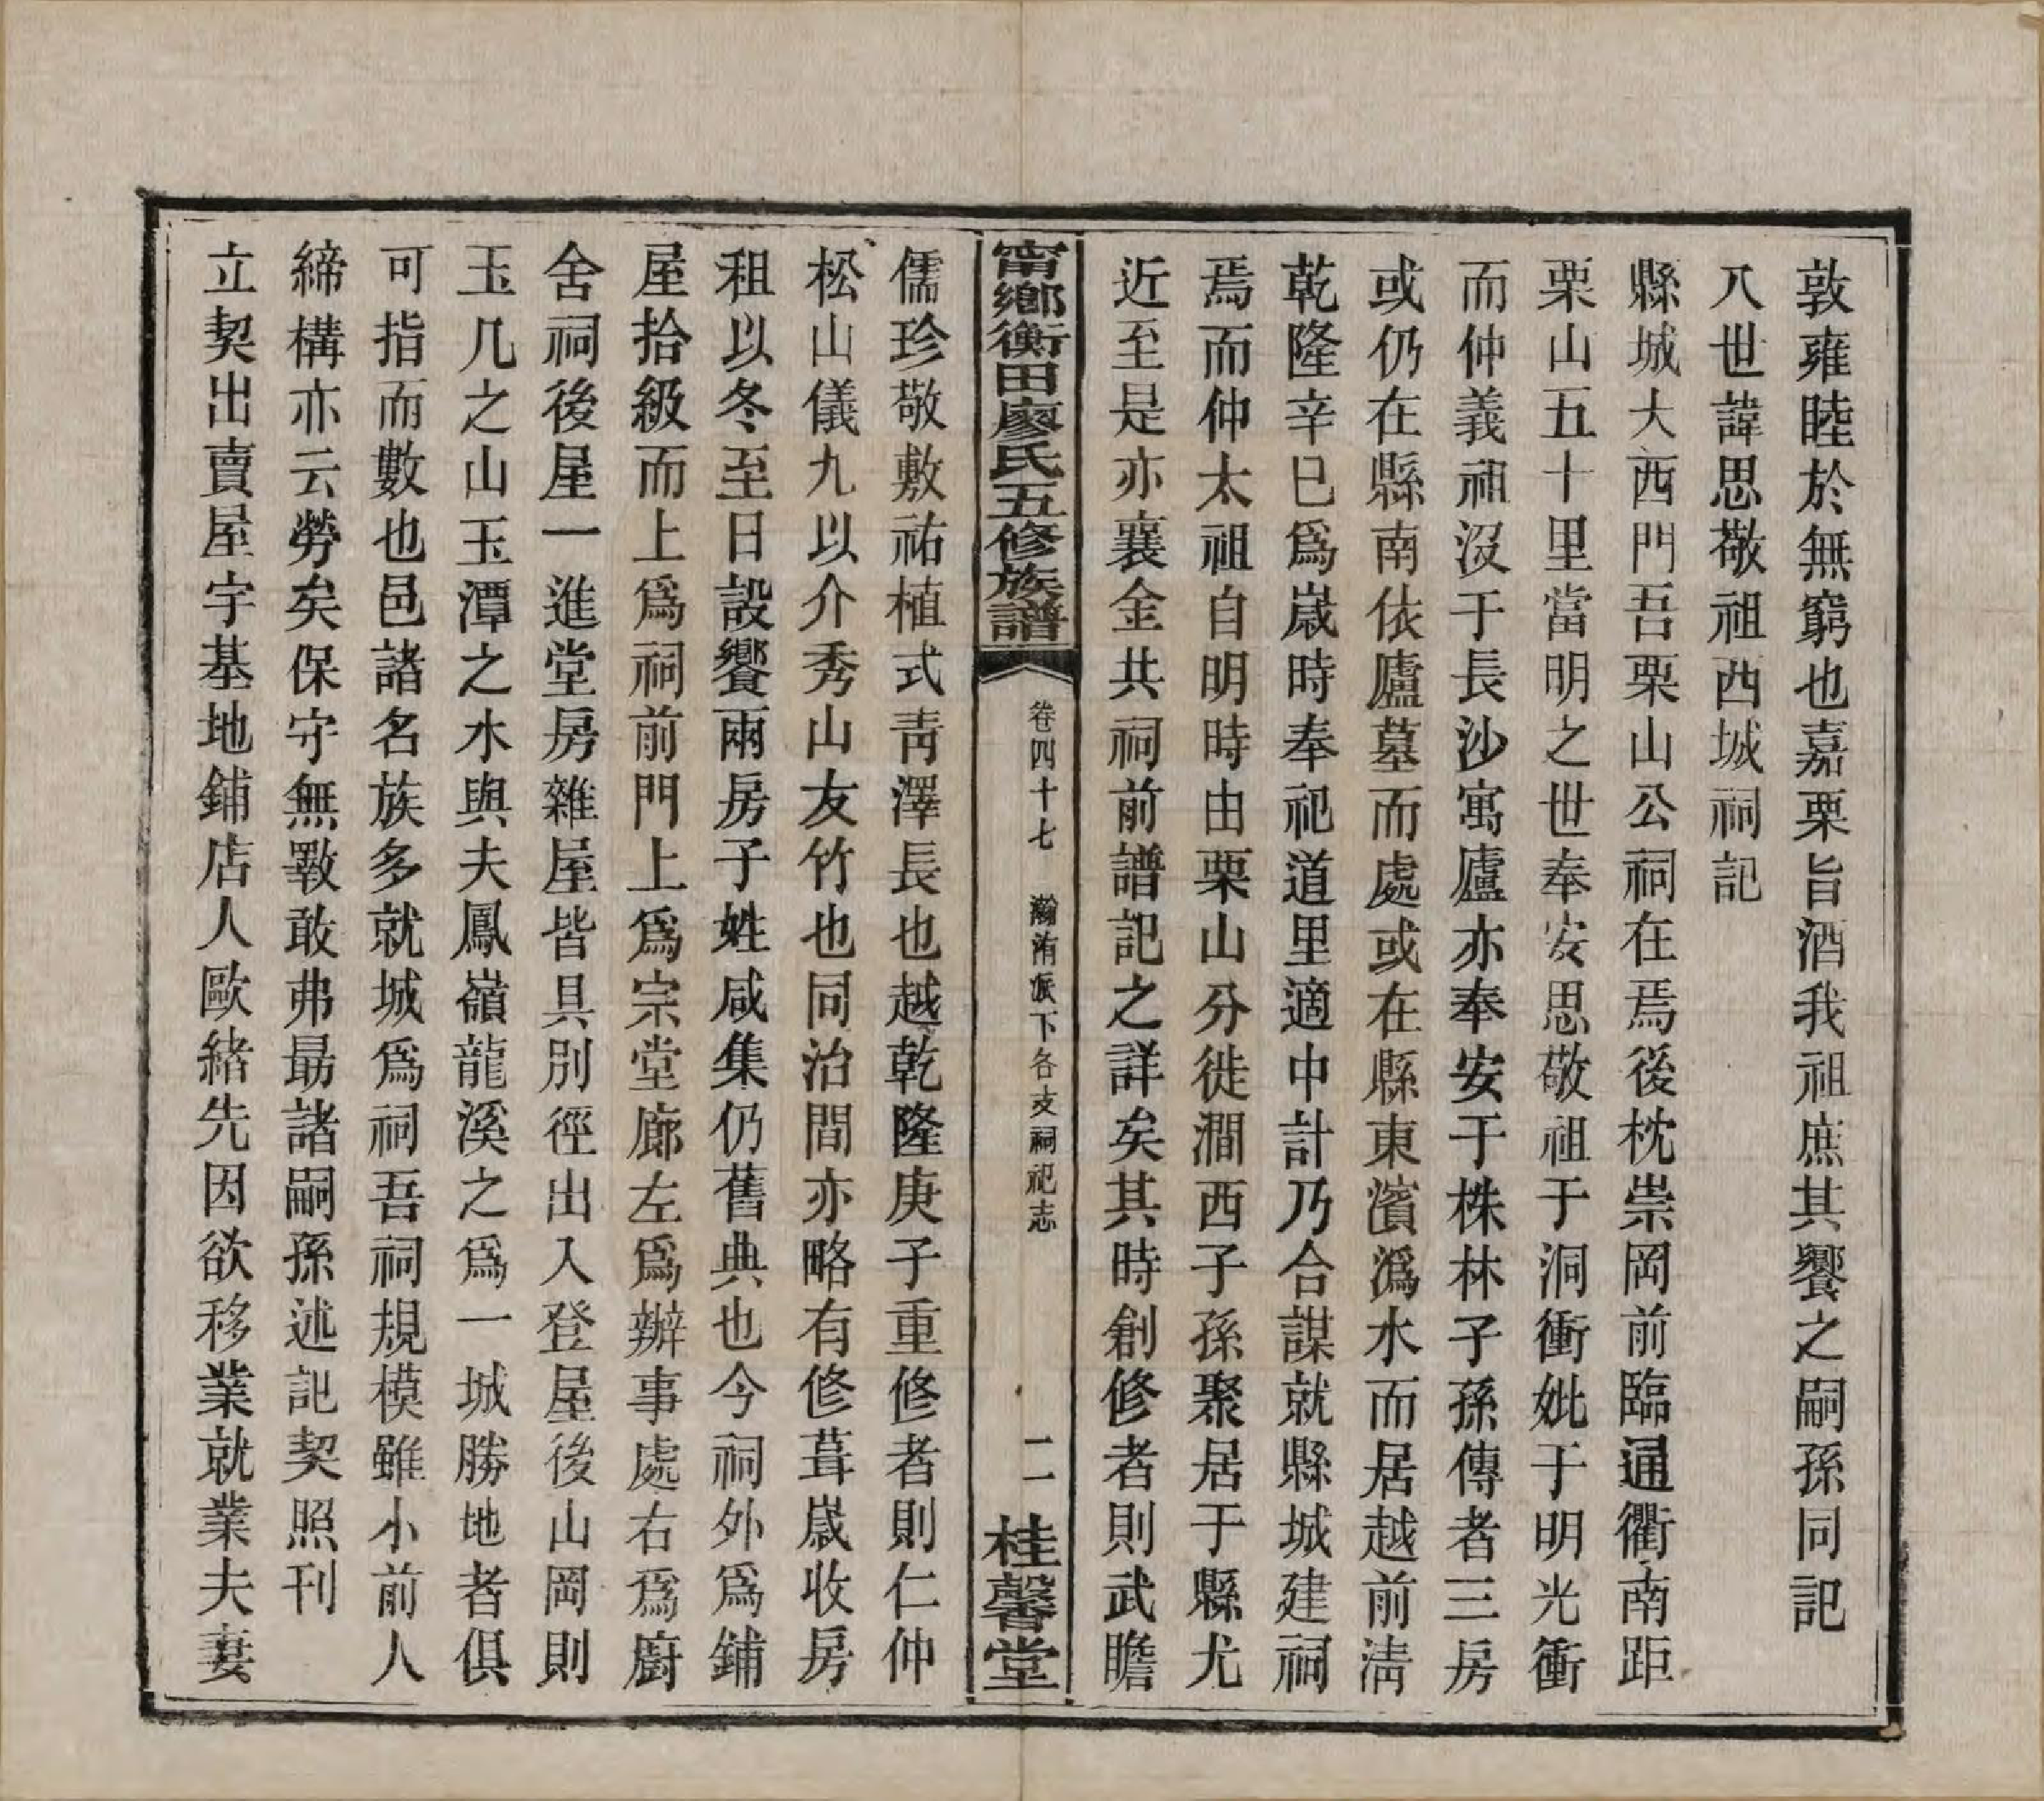 敦雍睦於無窮也嘉栗旨酒我祖庶其饗之嗣孫同記
八世諱思敬祖西城祠記
縣城大西門吾栗山公祠在焉後枕崇岡前臨通衢南距
栗山五十里當明之世奉安思敬祖于洞衝妣于明光衝
而仲義祖沒于長沙寓廬亦奉安于株林子孫傳者三房
或仍在縣南依廬墓而處或在縣東濱溈水而居越前淸
乾隆辛巳爲嵗時奉祀道里適中計乃合謀就縣城建祠
焉而仲太祖自明時由栗山分徙澗西子孫聚居于縣尤
近至是亦襄金共祠前譜記之詳矣其時創修者則武瞻
甯鄉衡田廖氏五修族譜
卷四十七 瀚洧派下各支祠祀志
二
桂馨堂
儒珍敬敷祐植式靑澤長也越乾隆庚子重修者則仁仲
松山儀九以介秀山友竹也同治間亦略有修葺嵗收房
租以冬至日設饗兩房子姓咸集仍舊典也今祠外爲鋪
屋拾級而上爲祠前門上爲宗堂廊左爲辦事處右爲廚
舍祠後屋一進堂房雜屋皆具別徑出入登屋後山岡則
玉几之山玉潭之水與夫鳳嶺龍溪之爲一城勝地者俱
可指而數也邑諸名族多就城爲祠吾祠規模雖小前人
締構亦云勞矣保守無斁敢弗勗諸嗣孫述記契照刊
立契出賣屋宇基地鋪店人歐緒先因欲移業就業夫妻